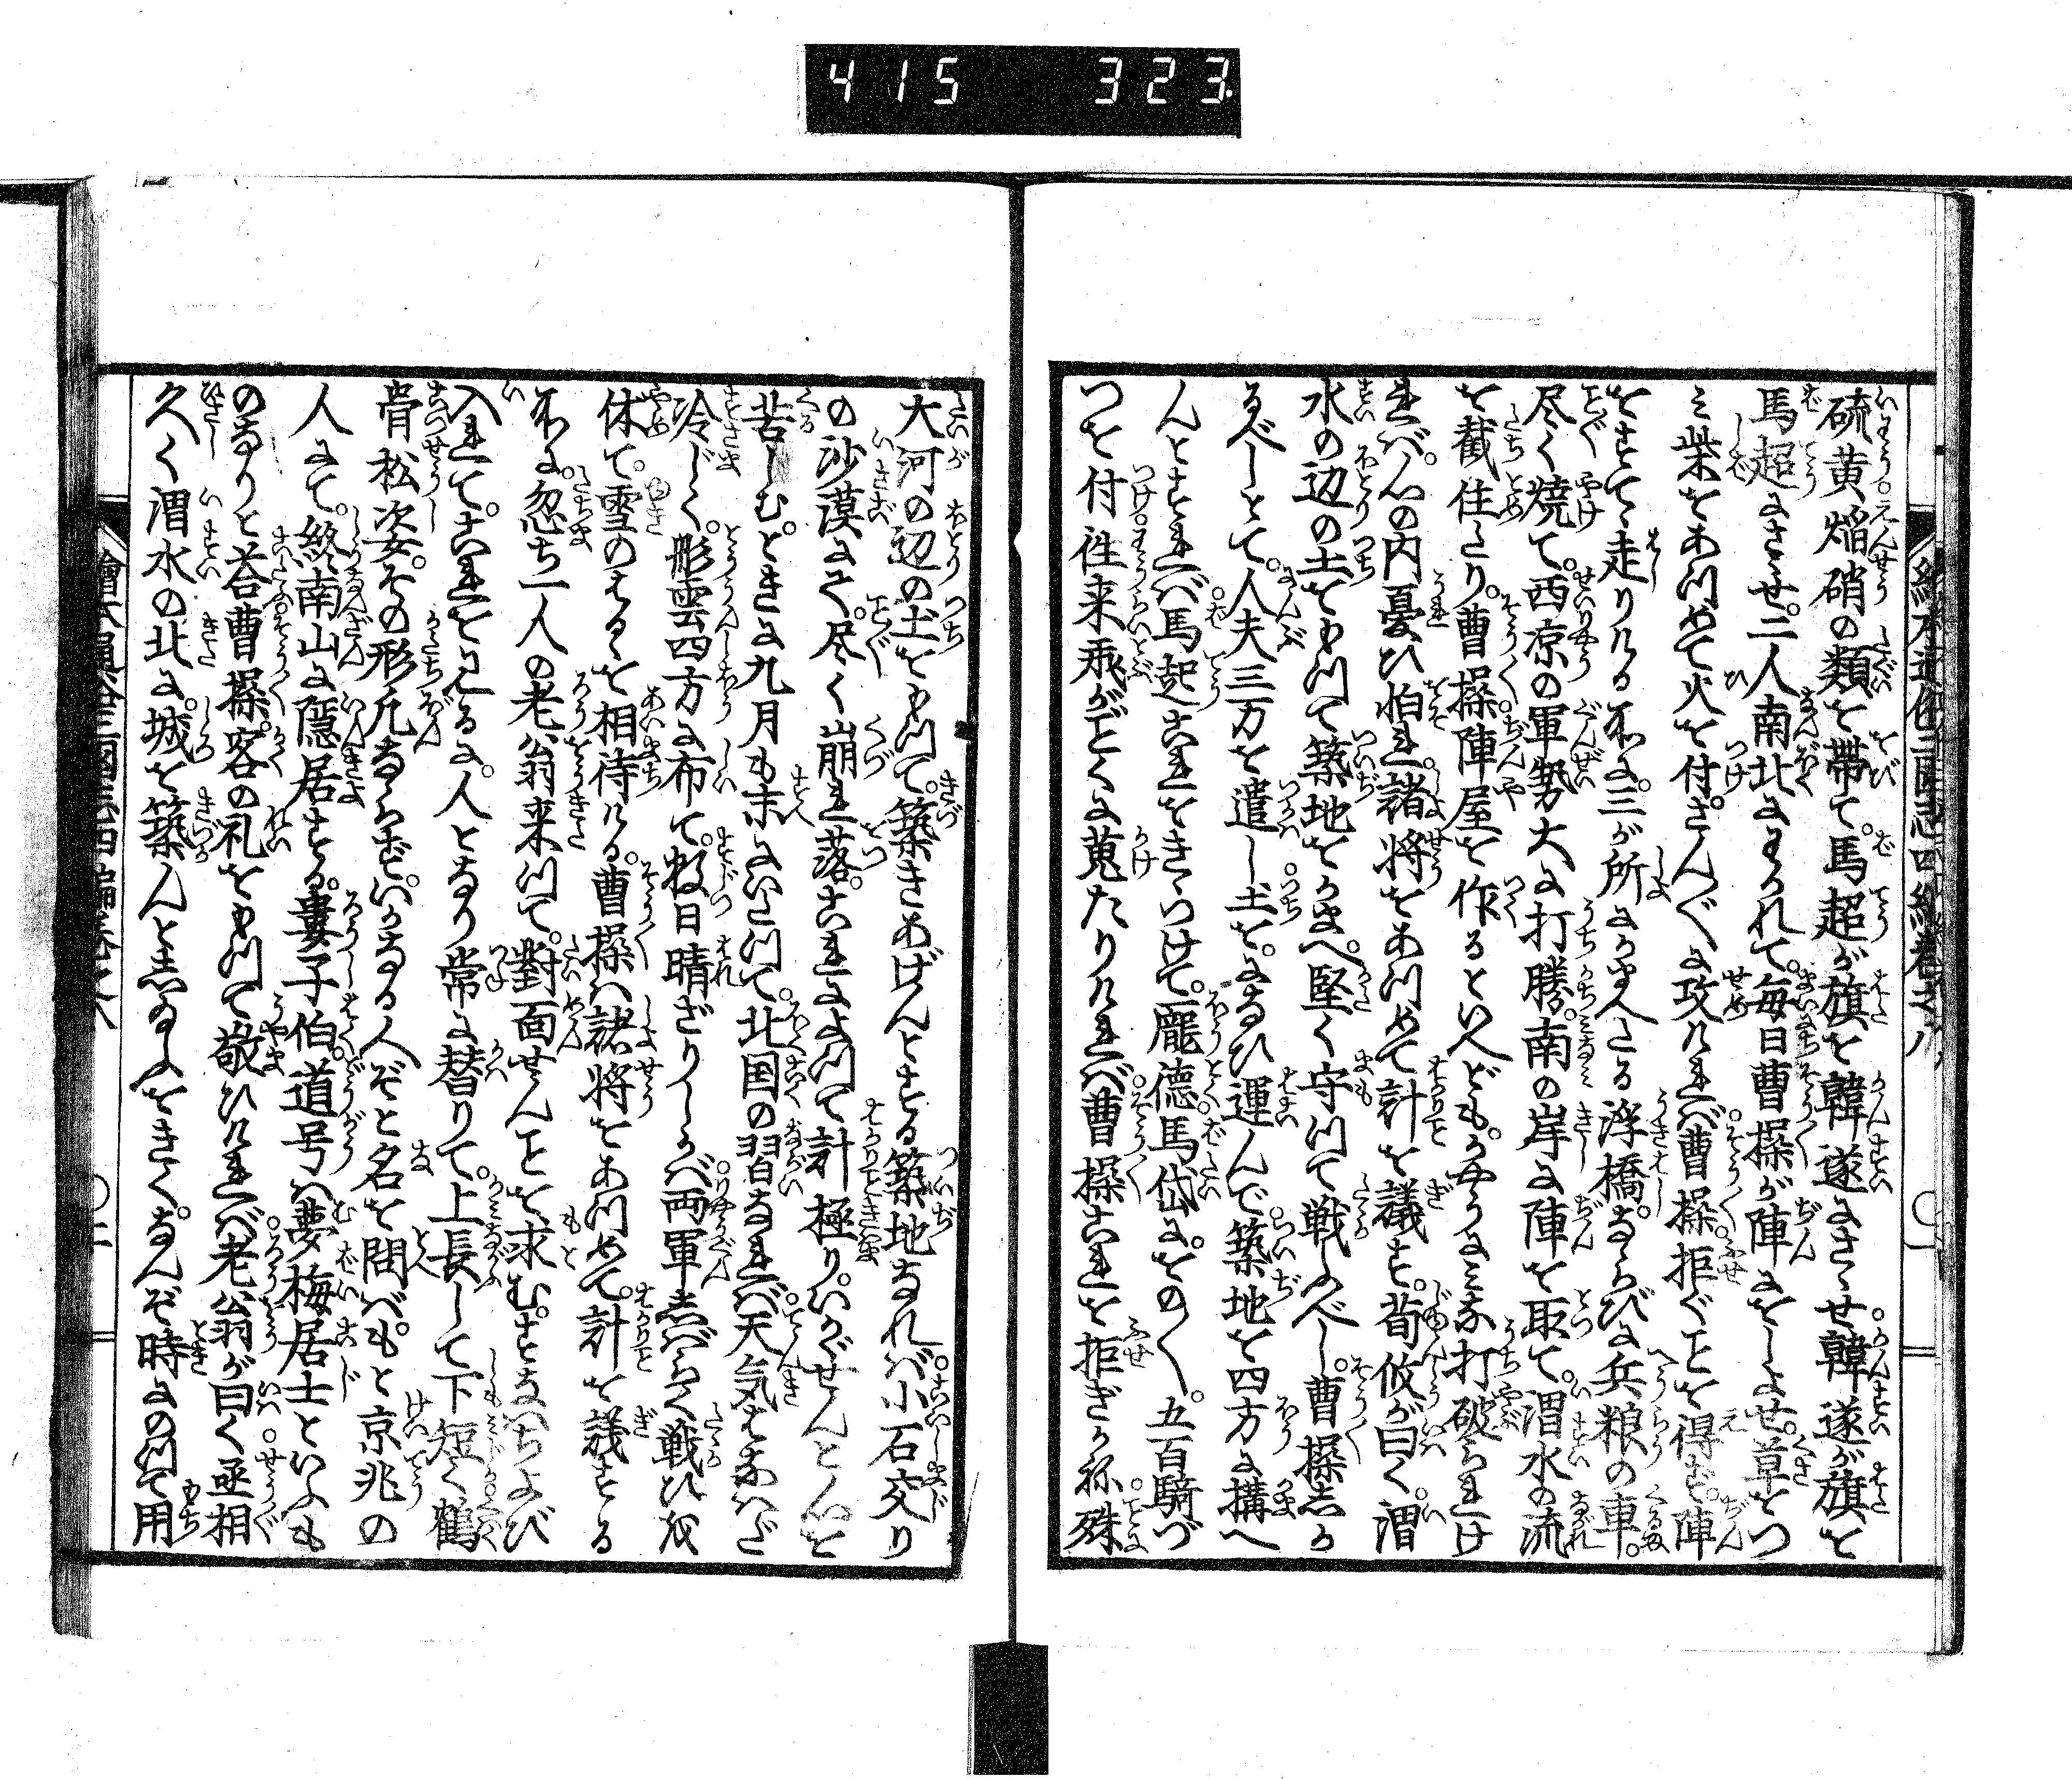 415 323
硫黄焔硝の類を帯て。馬超が旗を韓遂にさゝせ韓遂が旗を
馬超にさゝせ。二人南北にわかれて。毎日曹操が陣によせ。草をつ
み柴をあつめて火を付。さん〲に攻ければ曹操拒ぐことを得ず。陣
をすてゝ走りける所に。三が所にかまへたる浮橋。ならびに兵粮の車。
尽く焼て。西凉の軍勢大に打勝。南の岸に陣を取て。渭水の流
を截住たり。曹操陣屋を作るといへども。かやうにみな打破られけ
れば。心の内憂ひ怕れ諸将をあつめて計を議す。荀攸が曰く渭
水の辺の土をもつて築地をかまへ。堅く守つて戦ふべし。曹操しか
るべしとて。人夫三万を遣し土を。になひ運んで築地を四方に搆へ
んとすれば馬超これをきゝつけて。龐徳馬岱に。をのく。五百騎づ
つを付往来飛がごとくに蒐たりければ曹操これを拒ぎかね殊
大河の辺の土をもつて。築きあげんとする築地なれば。小石交り
の沙漠にて。尽く崩れ落。これによつて計極り。いかゞせんと心を
苦しむ。ときに九月も末にいたつて。北国の習なれば天気はなはだ
冷じく。彤雲四方に布て。数日晴ざりしかば両軍しばらく戦ひを
休て。雪のはるゝを相待ける。曹操は諸将をあつめて。計を議する
所に。忽ち一人の老翁来つて。対面せんことを求む。すなはちよび
入れて。これを見るに。人となり常に替りて。上長して下短く鶴
骨松姿。その形凡ならず。いかなる人ぞと名を問ば。もと京兆の
人にて。終南山に隠居する。婁子伯道号は夢梅居士といふも
のなりと荅曹操。客の礼をもつて敬ひければ老翁が曰く丞相
久く渭水の北に。城を築んとしたまふをきく。なんぞ時にのつて用